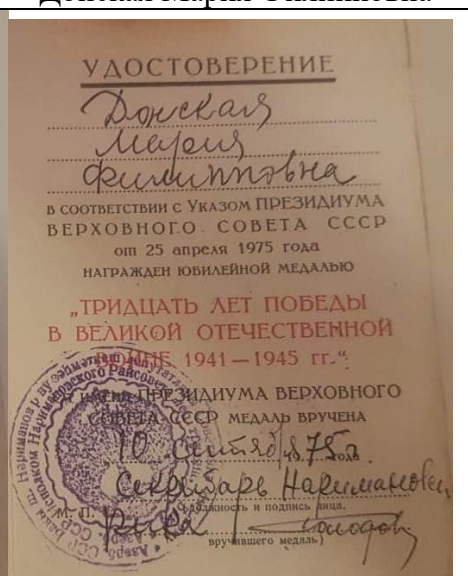 Донская Мария Филипповна
УДОСТОВЕРЕНИЕ
Донская
Мария
Филипповна
В СООТВЕТСТВИИ С УКАЗОМ ПРЕЗИДИУМА
ВЕРХОВНОГО СОВЕТА СССР
от 25 апреля 1975 года
НАГРАЖДЕН ЮБИЛЕЙНОЙ МЕДАЛЬЮ
„ТРИДЦАТЬ ЛЕТ ПОБЕДЫ
В ВЕЛИКОЙ ОТЕЧЕСТВЕННОЙ
ВОЙНЕ 1941—1945 гг.“
ОТ ИМЕНИ ПРЕЗИДИУМА ВЕРХОВНОГО
СОВЕТА СССР МЕДАЛЬ ВРУЧЕНА
10 Сентяб 1975 года
Секретарь Наримановск
М. П. (должность и подпись лица,
РИКа
вручившего медаль)